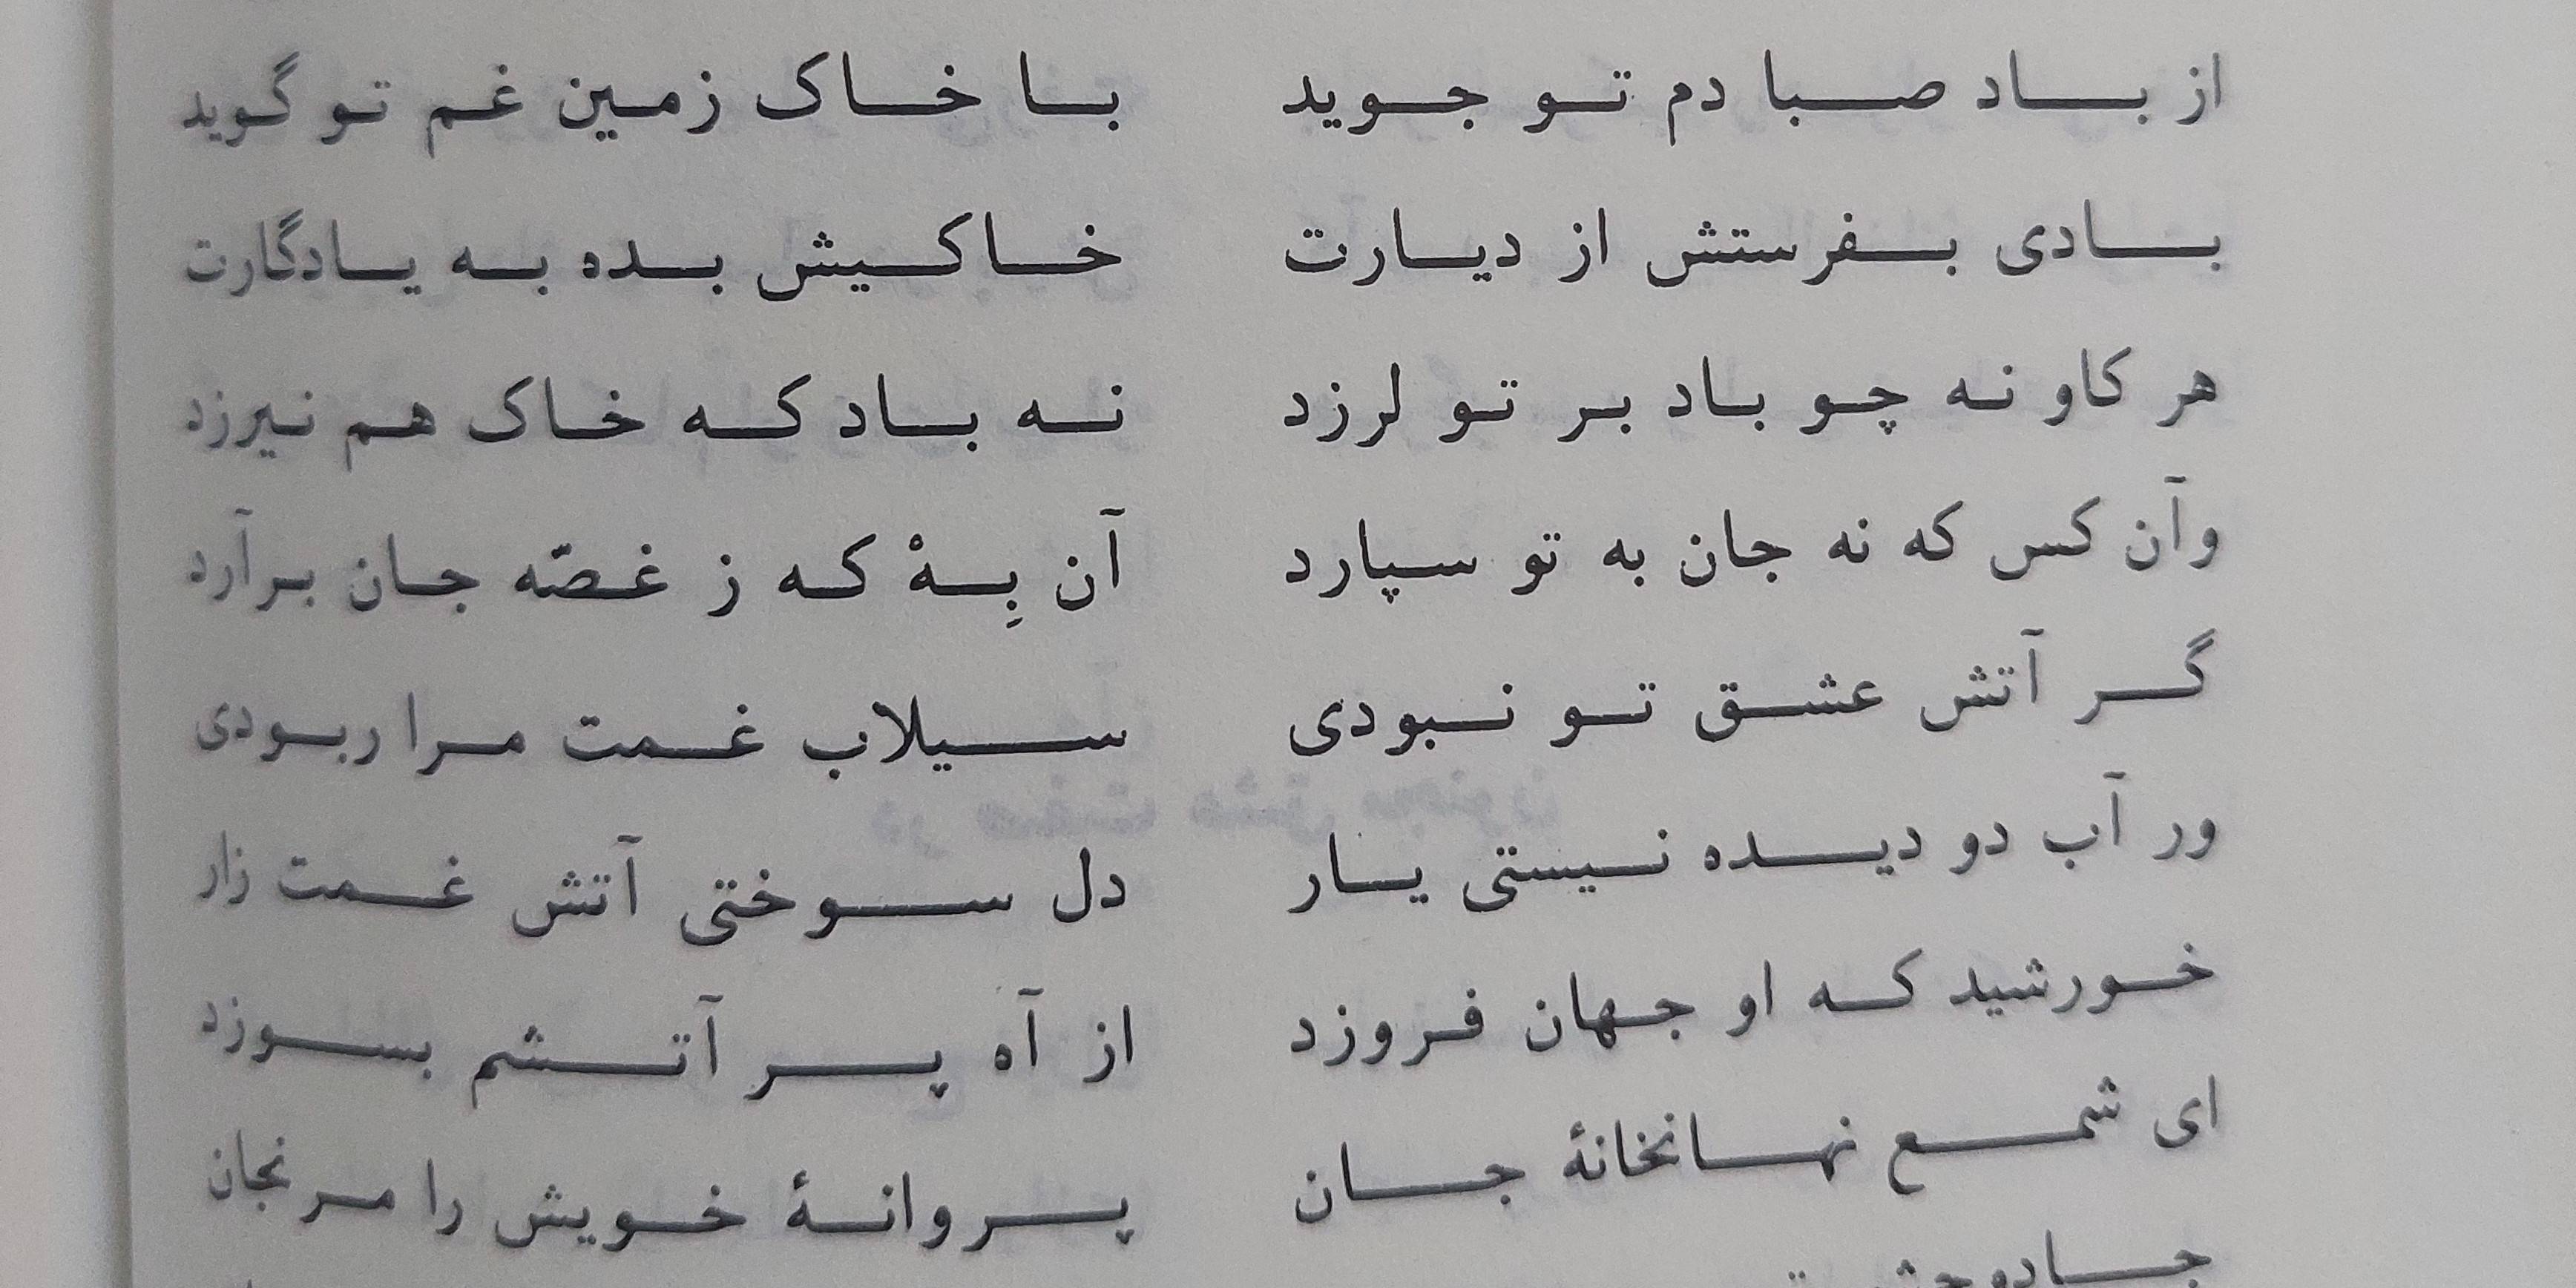 از باد صبا دم تو جوید با خاک زمین غم تو گوید
بادی بفرستش از دیارت خاکیش بده به یادگارت
هر کاو نه چو باد بر تو لرزد نه باد که خاک هم نیرزد
وآن کس که نه جان به تو سپارد آن بِهْ که ز غصّه جان برآرد
گر آتش عشق تو نبودی سیلاب غمت مرا ربودی
ور آب دو دیده نیستی یار دل سوختی آتش غمت زار
خورشید که او جهان فروزد از آه پر آتشم بسوزد
ای شمع نهانخانهٔ جان پروانهٔ خویش را مرنجان